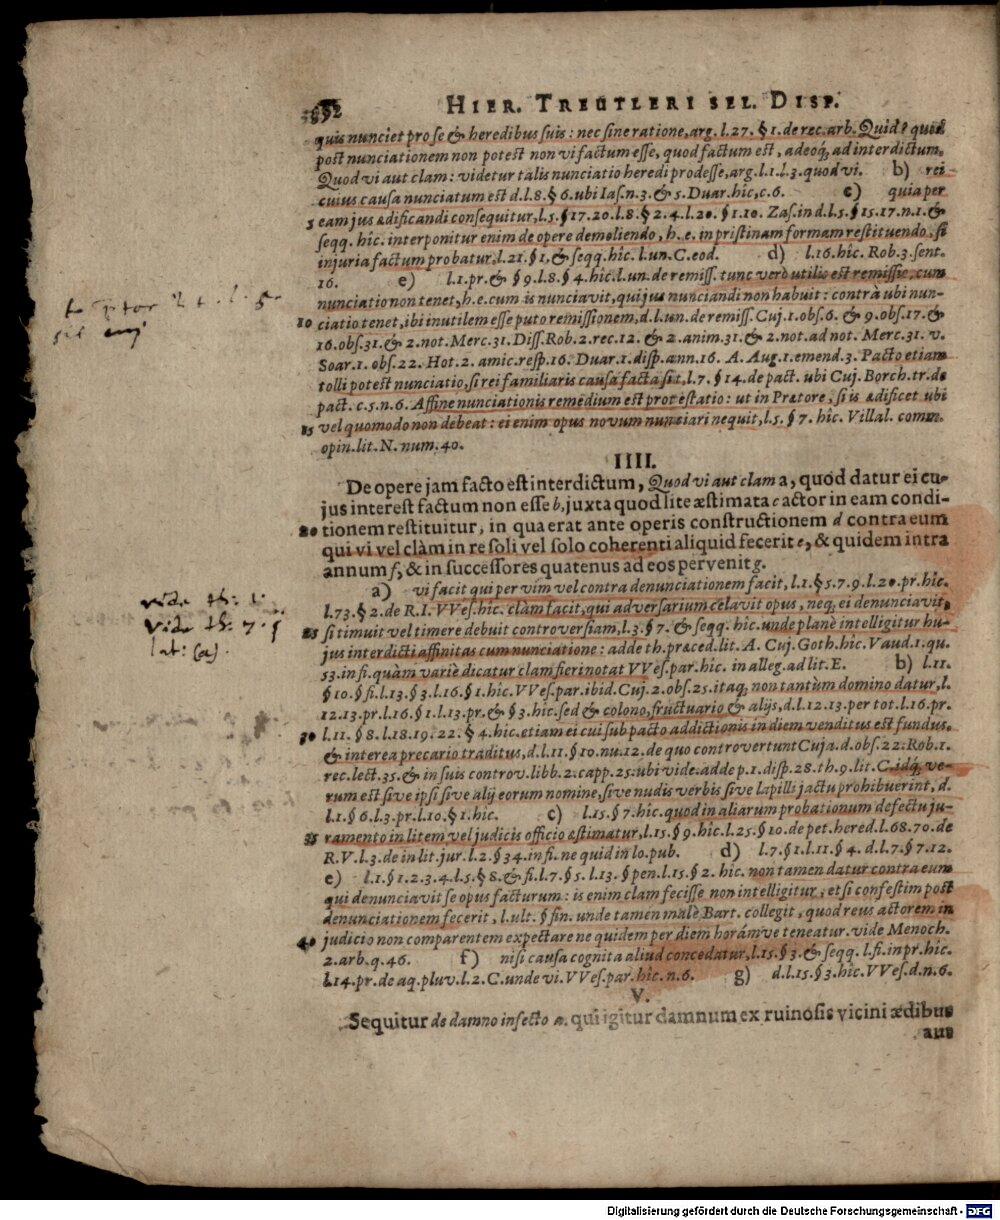 HIER. TREUTLERI SEL. DISP.
quis nunciet pro se & heredibus suis: nec sine ratione, arg. l.27. §1. de rec. arb. Quid? quod
post nunciationem non potest non vi factum esse, quod factum est, adeoq́, ad interdictum.
Quod vi aut clam: videtur talis nunciatio heredi prodesse, arg. l.1.l.3. quod vi. b) rei
cuius causa nunciatum est d.l.8. § 6. ubi Ias. n.3. & 5. Duar. hîc, c.6. c) quia per
5 eam jus ædificandi consequitur, l.5. §17.20. l.8. § 2.4. l.20. §1.10. Zas. in d.l.5. §15.17. n.1. &
seqq. hîc. interponitur enim de opere demoliendo, h.e. in pristinam formam restituendo, si
injuria factum probatur, l.21. §1. & seqq. hîc. l.un. C. eod. d) l.16. hîc. Rob.3. sent.
16. e) l.1.pr. & §9. l.8. §4. hîc. l.un. de remiss. tunc verò utilis est remissio, cum
nunciatio non tenet, h.e. cum is nunciavit, qui jus nunciandi non habuit: contrà ubi nun-
10 ciatio tenet, ibi inutilem esse puto remissionem, d.l.un. de remiss. Cuj.1. obs.6. & 9. obs.17. &
16. obs.31. & 2. not. Merc.31. Diss. Rob.2. rec.12. & 2. anim.31. & 2. not. ad not. Merc.31. v.
Soar.1. obs.22. Hot.2. amic. resp.16. Duar.1. disp. ann.16. A. Aug.1. emend.3. Pacto etiam
tolli potest nunciatio, si rei familiaris causa facta sit, l.7. §14. de pact. ubi Cuj. Borch. tr. de
pact. c.5. n.6. Affine nunciationis remedium est protestatio: ut in Prætore, si is ædificet ubi
15 vel quomodo non debeat: ei enim opus novum nunciari nequit, l.5. §7. hîc. Villal. comm.
opin. lit. N. num.40.
IIII.
De opere jam facto est interdictum, Quod vi aut clam a, quod datur ei cu-
jus interest factum non esse b, juxta quod lite æstimata c actor in eam condi-
20 tionem restituitur, in qua erat ante operis constructionem d contra eum
qui vi vel clàm in re soli vel solo coherenti aliquid fecerit e, & quidem intra
annum f, & in successores quatenus ad eos pervenit g.
a) vi facit qui per vim vel contra denunciationem facit, l.1. §5.7.9. l.20. pr. hîc.
l.73. §2. de R.I. VVes. hîc. clàm facit, qui adversarium celavit opus, neq; ei denunciavit,
25 si timuit vel timere debuit controversiam, l.3. §7. & seqq. hîc. unde planè intelligitur hu-
jus interdicti affinitas cum nunciatione: adde th. præced. lit. A. Cuj. Goth. hîc. Vaud.1. qu.
53. in fi. quàm variè dicatur clam fieri notat VVes. par. hîc. in alleg. ad lit. E. b) l.11.
§10. §fi. l.13. §3. l.16. §1. hîc. VVes. par. ibid. Cuj.2. obs.25. itaq; non tantùm domino datur, l.
12.13. pr. l.16. §1. l.13. pr. & §3. hîc. sed & colono, fructuario & alijs, d.l.12.13. per tot. l.16. pr.
30 l.11. §8. l.18.19.22. §4. hîc. etiam ei cui sub pacto addictionis in diem venditus est fundus,
& interea precario traditus, d.l.11. §10. nu.12. de quo controvertunt Cuja. d. obs.22. Rob.1.
rec. lect.35. & in suis controv. libb.2. capp.25. ubi vide. adde p.1. disp.28. th.9. lit. C. idq́, ve-
rum est sive ipsi sive alij eorum nomine, sive nudis verbis sive lapilli jactu prohibuerint, d.
l.1. §6. l.3. pr. l.10. §1. hîc. c) l.15. §7. hîc. quod in aliarum probationum defectu ju-
35 ramento in litem vel judicis officio æstimatur, l.15. §9. hîc. l.25. §10. de pet. hered. l.68.70. de
R.V. l.3. de in lit. jur. l.2. §34. in fi. ne quid in lo. pub. d) l.7. §1. l.11. §4. d.l.7. §7.12.
e) l.1. §1.2.3.4. l.5. §8. & fi. l.7. §5. l.13. §pen. l.15. §2. hîc. non tamen datur contra eum
qui denunciavit se opus facturum: is enim clam fecisse non intelligitur, etsi confestim post
denunciationem fecerit, l.ult. §fin. unde tamen malè Bart. collegit, quod reus actorem in
40 judicio non comparentem expectare ne quidem per diem horámve teneatur. vide Menoch.
2. arb. q.46. f) nisi causa cognita aliud concedatur, l.15. §3. & seqq. l.fi. in pr. hîc.
l.14. pr. de aq. pluv. l.2. C. unde vi. VVes. par. hîc. n.6. g) d.l.15. §3. hîc. VVes. d.n.6.
V.
Sequitur de damno infecto a. qui igitur damnum ex ruinosis vicini ædibus
aut
vide th: 1.
vide th: 7.
lat: (a).
Digitalisierung gefördert durch die Deutsche Forschungsgemeinschaft - DFG